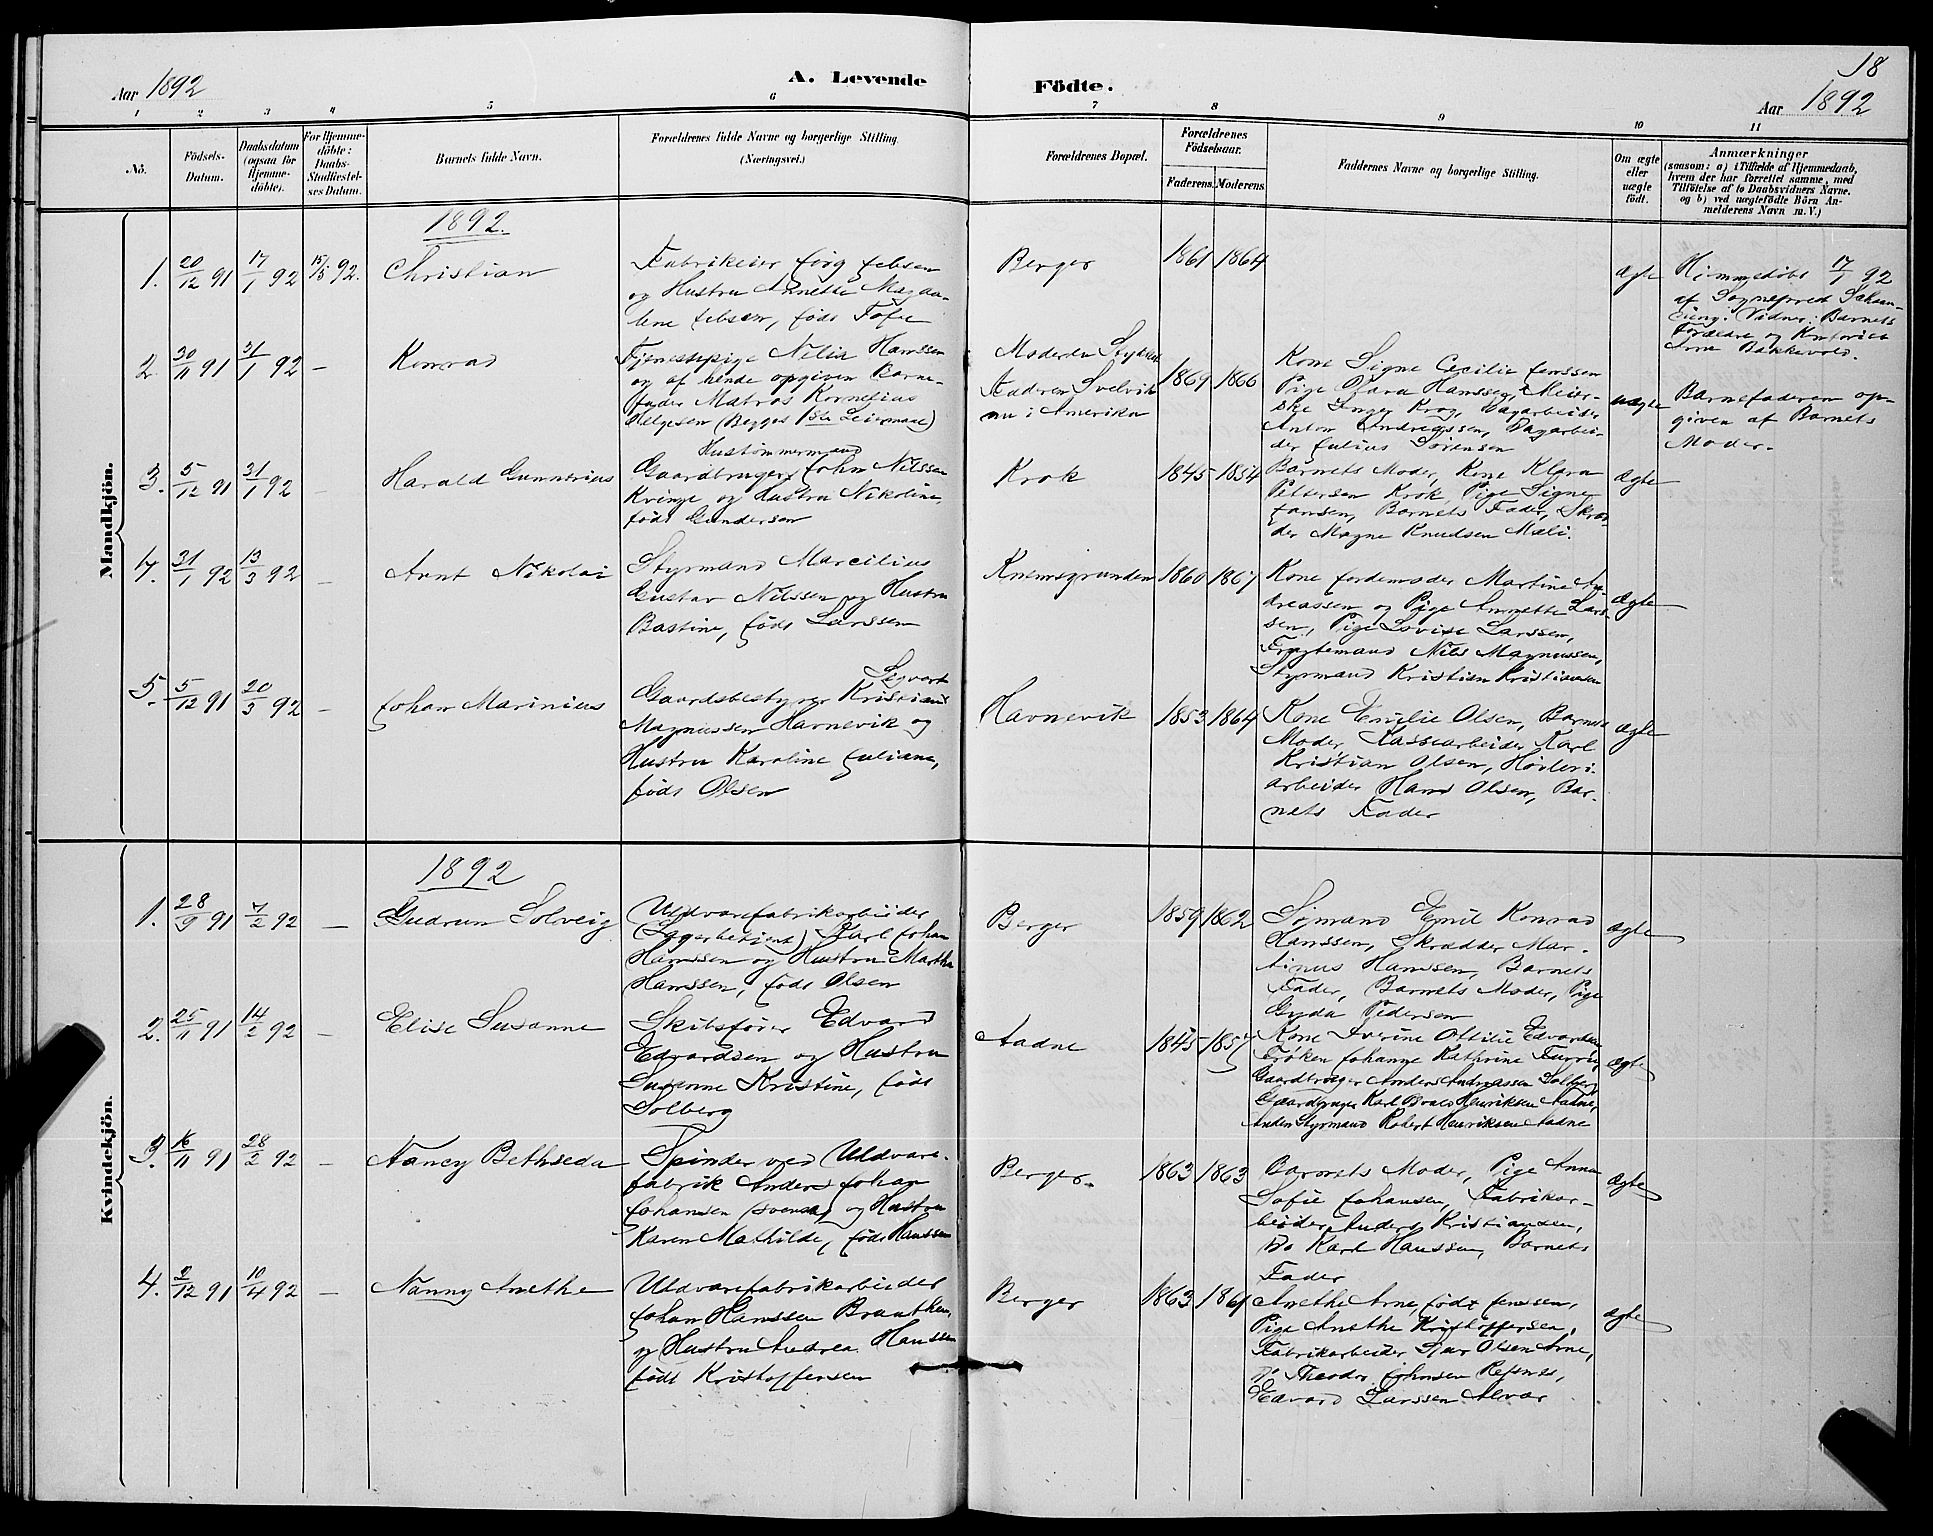 18
Aar 1892
A. Levende Födte.
Aar 1892
1 2 3 4 5 6 7 8 9 10 11
No.
Födsels-
Datum.
Daabsdatum
(ogsaa for
Hjemme-
döbte).
For Hjemme-
döbte:
Daabs-
Stadfæstel-
ses Datum.
Barnets fulde Navn.
Forældrenes fulde Navne og borgerlige Stilling.
(Næringsvei.)
Forældrenes Bopæl.
Forældrenes
Födselsaar.
Faderens. Moderens.
Faddernes Navne og borgerlige Stilling.
Om ægte
eller
uægte
födt.
Anmærkninger
(saasom: a) i Tilfælde af Hjemmedaab,
hvem der har forrettet samme, med
Tilföielse af to Daabsvidners Navne,
og b) ved uægtefödte Börn An-
melderens Navn m. V.)
Mandkjön.
1892.
1. 20/12 91 17/1 92 15/5 92. Christian
Fabrikeier Jürg Jebsen
og Hustru Annette Magda-
lene Jebsen, født Tofte
Berger
1861 1864
ægte
Hjemmedøbt 17/1 92
af Sogneprest
Vidner: Barnets
Forældre og Kontorist
Arne Bakkevold.
2. 30/11 91 31/1 92 – Konrad
Tjenestepige Nilia Hanssen
og af hende opgiven Barne-
fader Matros Kornelius
Helgesen (Begges 1ste Leiermaal)
Moderen
Faderen Svelvik
nu i Amerika
1869 1866
Kone Signe Cecilie Jenssen
Pige Klara Hanssen, Meier-
ske Inger Krog, Dagarbeider
Anton Andreassen, Dagarbei-
der Julius Sørensen
uægte
Barnefaderen op-
given af Barnets
Moder.
3. 5/12 91 31/1 92 – Harald Gunnerius
Hustømmermand
Gaardbruger John Nilssen
Kvinge og Hustru Nikoline,
født Gundersen
Krok
1845 1854
Barnets Moder, Kone Klara
Pettersen Krok, Pige Signe
Jansen, Barnets Fader, Skræd-
der Magne Knudsen Mæli.
ægte
4. 31/1 92 13/3 92 – Arnt Nikolai
Styrmand Marcilius
Gustav Nilssen og Hustru
Bastine, født Larssen
Knemsgrunden
1860 1867
Kone Jordemoder Martine An-
dreassen og Pige Annette Lars-
sen, Pige Lovise Larssen,
Fragtemand Nils Magnussen,
Styrmand Kristian Kristiansen
ægte
5. 5/12 91 20/3 92 – Johan Marinius
Sigvart
Gaardsbestyrer Kristian
Magnussen Havnevik og
Hustru Karoline Juliane,
født Olsen
Havnevik
1853 1864
Kone Emilie Olsen, Barnets
Moder, Kassearbeider Karl
Kristian Olsen, Høvleri-
arbeider Hans Olsen, Bar-
nets Fader
ægte
Kvindekjön.
1892
1. 28/9 91 7/2 92 – Gudrun Solveig
Uldvarefabrikarbeider
(Lagerbetjent) Karl Johan
Hanssen og Hustru Martha
Hanssen, født Olsen
Berger
1859 1862
Sjømand Emil Konrad
Hanssen, Skrædder Mar-
tinus Hanssen, Barnets
Fader, Barnets Moder, Pige
Gyda Pedersen
ægte
2. 25/11 91 14/2 92 – Elise Susanne
Skibsfører Edvard
Edvardsen og Hustru
Susanne Kristine, født
Solberg
Aadne
1845 1857
Kone Iverine Ottilie Edvardsen
Frøken Johanne Kathrine
Gaardbruger Anders Andreassen Solberg
Gaardbruger Karl Henriksen Aadne,
Anden Styrmand Robert Henriksen Aadne
ægte
3. 16/11 91 28/2 92 – Nancy Bethseda
Spinder ved Uldvare-
fabrik Anders Johan
Johansen (svensk) og Hustru
Karen Mathilde, født Hanssen
Berger.
1863 1863
Barnets Moder, Pige Anna
Sofie Johansen, Fabrikar-
beider Anders Kristiansen,
Do Karl Hanssen, Barnets
Fader
ægte
4. 2/12 91 10/4 92 – Nanny Anethe
Uldvarefabrikarbeider
Johan Hanssen Braathen
og Hustru Andrea Hanssen
født Kristoffersen
Berger
1863 1861
Anethe Arne, født Jenssen,
Pige Anethe Kristoffersen,
Fabrikarbeider Olsen Arne,
Do Theodor Johnsen
Edvard Larssen
ægte